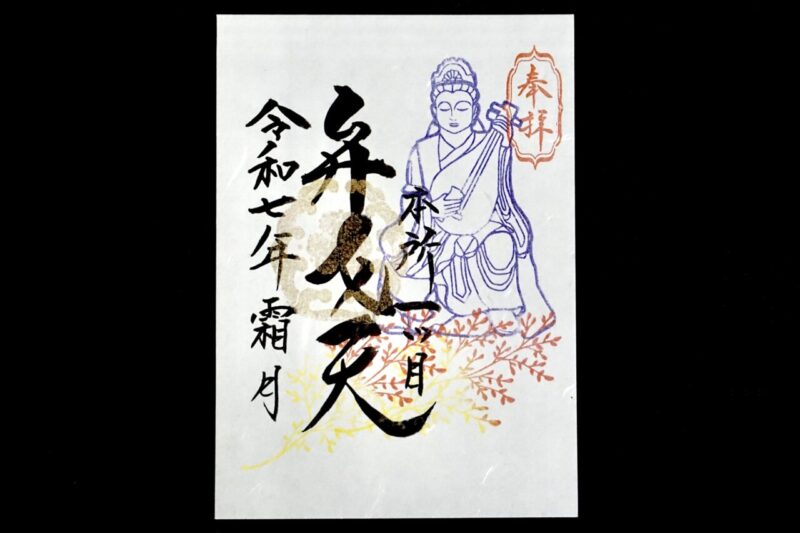 奉拝
本所一ツ目
弁天
令和七年霜月